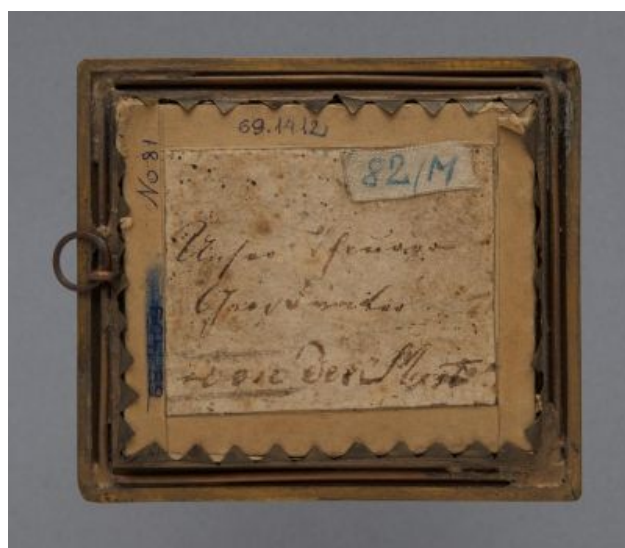 69.1412
No 81
82/M
Unser theurer
Grosvater
von der